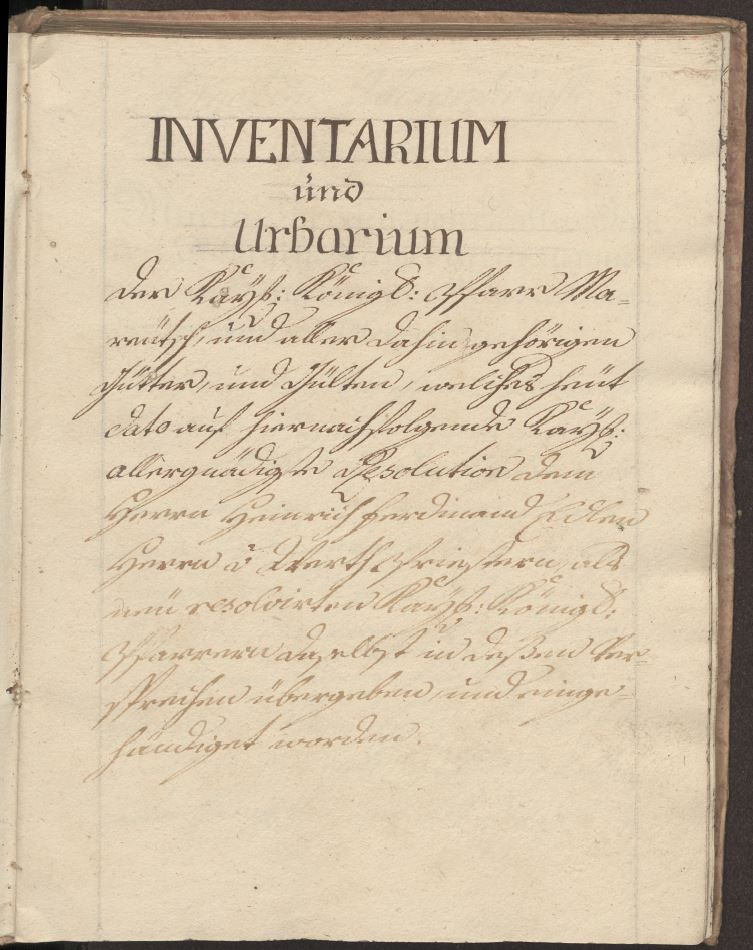 INVENTARIUM
und
Urbarium
der Kaÿß: Königl: Pfarr Ma-
reütsch, und aller dahin gehörigen
Gütter, und Gülten, welches heüt
dato auf hiernachfolgende Kaÿß:
allergnädigste Resolution dem
Herrn Heinrich Ferdinand Edlen
Herrn à Werth Priestern, als
neü resolvirten Kaÿß: Königl:
Pfarrern daselbst in deßen Ver-
sprechen übergeben, und einge-
händiget worden.